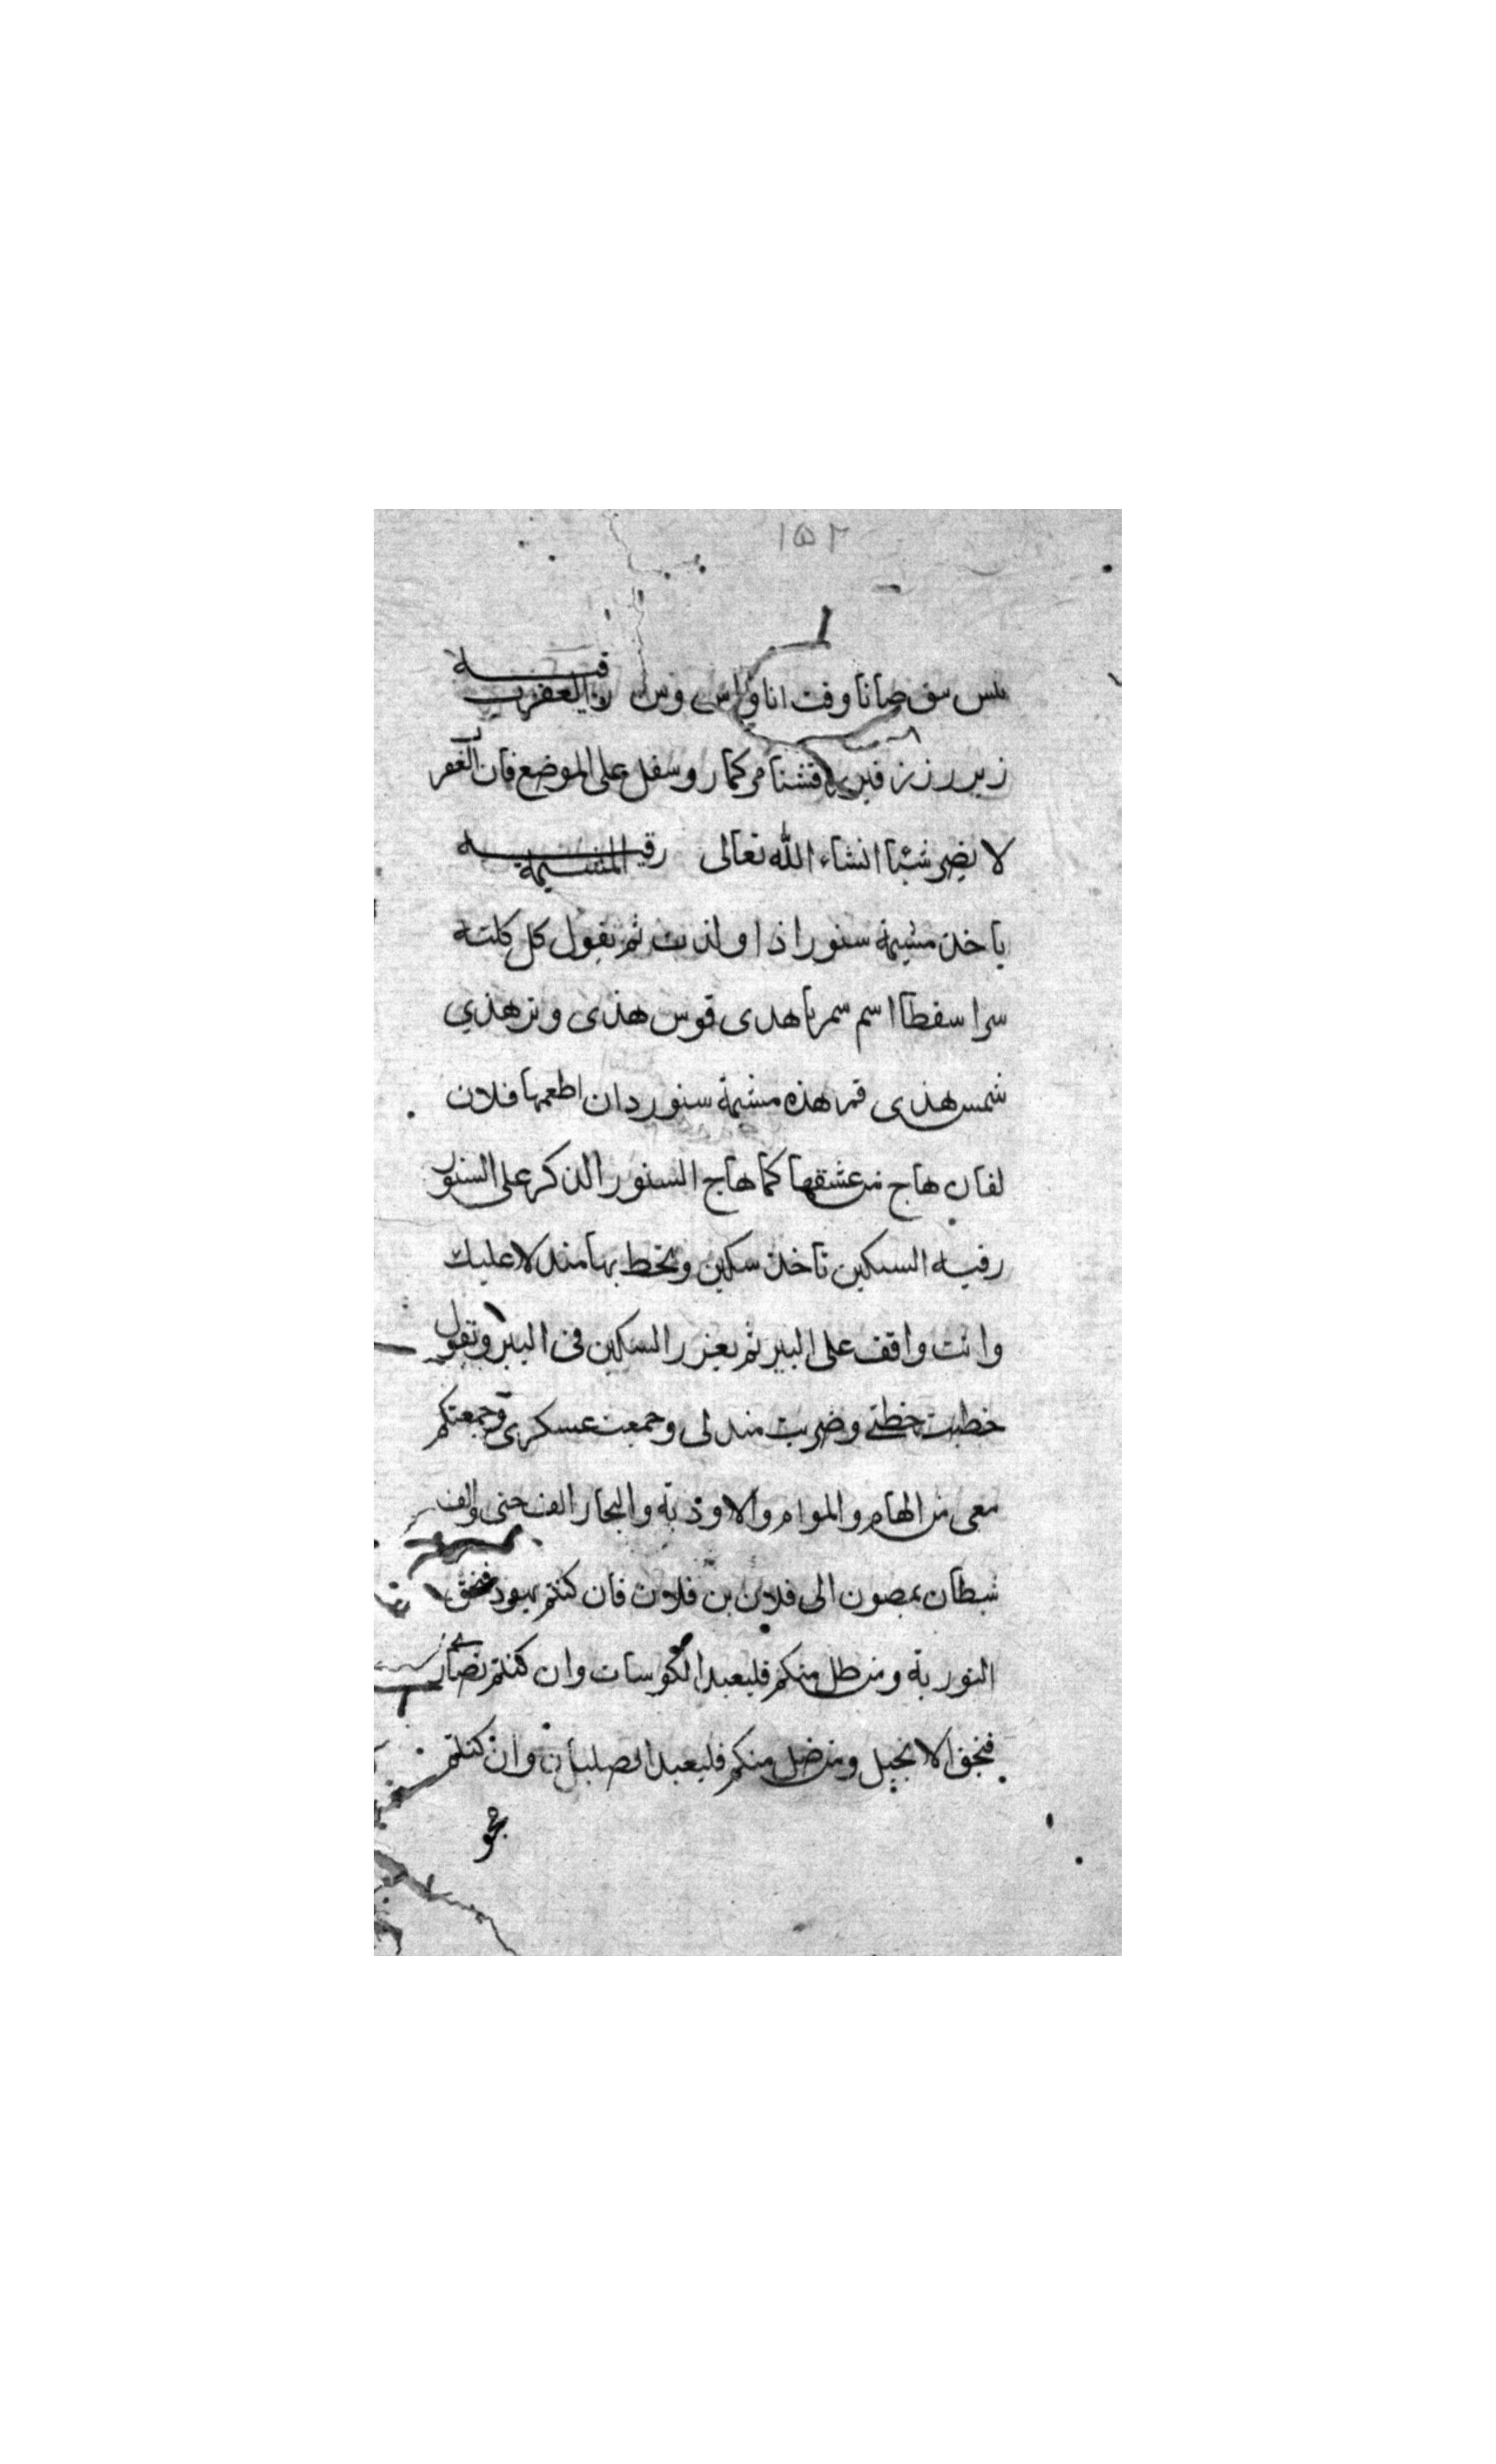 ١٥٢
سق صانا وفت انا وس رقيه العقرب
زبر زز على الموضع فان العقر
لا يضر شيئا انشاء الله تعالى رقيه المشيمة
ياخذ مشيمة سنور اذا ولدت ثم تقول كل كلته
سرا سفطا اسم سمريا هدى قوس هذى وتر هذي
شمس هذى قمر هذه مشيمة سنور دان اطعمها فلان
لفلان هاج من عشقها كما هاج السنور الذكر على السنور
رقيه السكين تاخذ سكين وتخط بها مندلا عليك
وانت واقف على البير ثم يغرز السكين فى البير وتقول
خططت خطتى وضربت مندلى وجمعت عسكرى وجمعتكم
معى من الهام والموام والاوديه والبحار الف جنى والف
شيطان يمصون الى فلان بن فلان فان كنتم يهود فبحق
التوريه ومن ظل منكم فليعبد الكوسات وان كنتم نصارى
فبحق الانجيل ومن ضل منكم فليعبد الصلبان وان كنتم